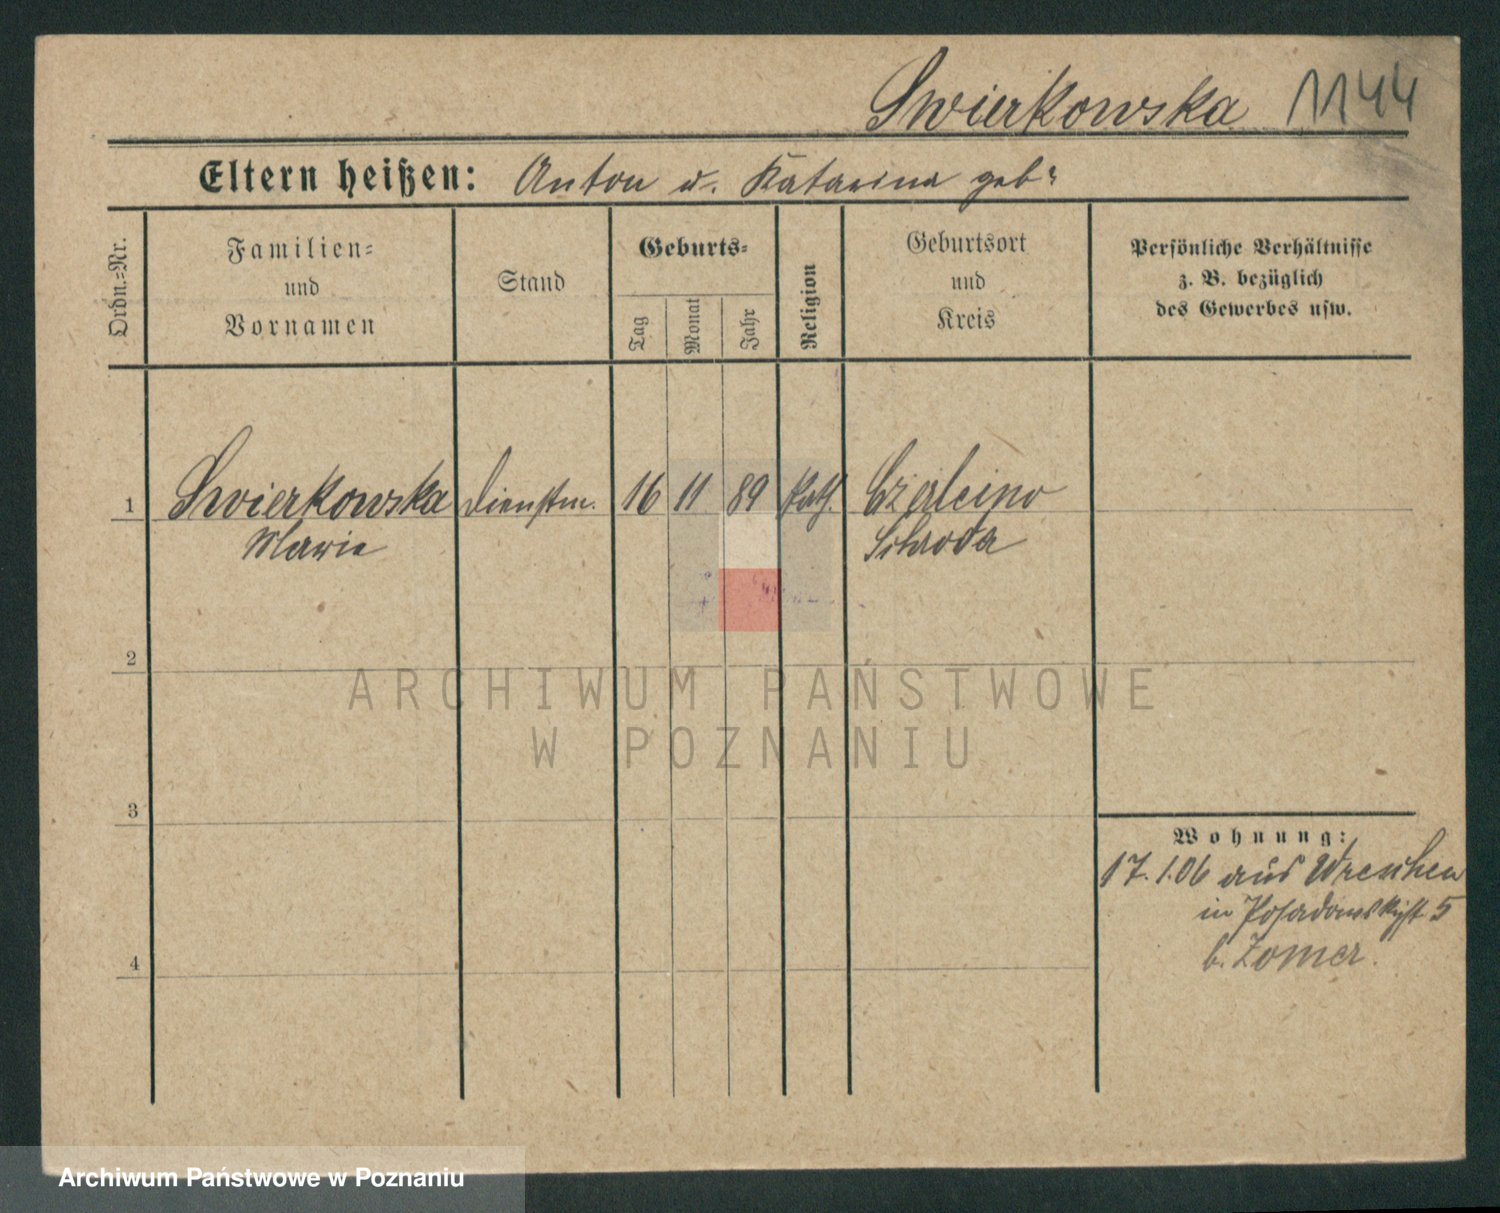 Swierkowska 1144
Eltern heißen: Anton u. Katarina geb?
Ordn.=Nr.
Familien=
und
Vornamen
Stand
Geburts=
Tag
Monat
Jahr
Religion
Geburtsort
und
Kreis
Persönliche Verhältnisse
z. B. bezüglich
des Gewerbes usw.
1 Swierkowska Dienstm. 16 11 89 kath.
Marie
Schroda
2
ARCHIWUM PAŃSTWOWE
W POZNANIU
3
Wohnung:
17.1.06 aus Wreschen
in Posadowskyst. 5
b. Zomer.
4
Archiwum Państwowe w Poznaniu